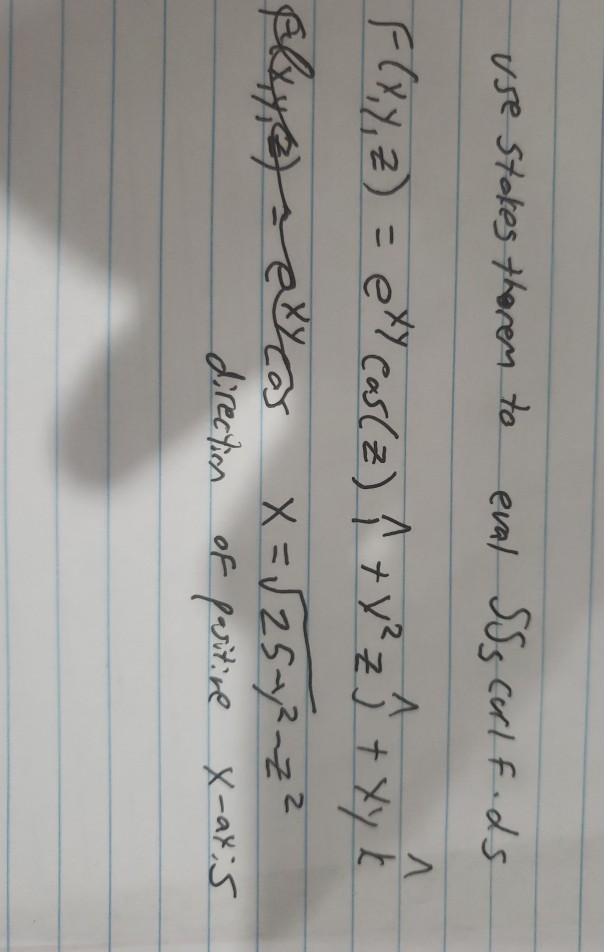 use stokes thorem to eval ∬s curl F.ds
F(x,y,z) = e^xy cos(z) î + y²z ĵ + xy k̂
F(x,y,z) = e^xy cos x = √25-y²-z²
direction of positive x-axis